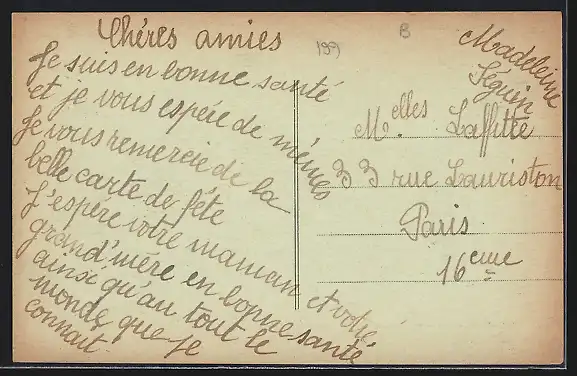 Chéres amies
Je suis en bonne santé
et je vous espére de mémes
Je vous remercie de la
belle carte de féte
J'espére votre maman et votre
grand'mére en bonne santé
ainsi qu'au tout le
monde que je
connait.
Madeleine
Séguin
Melles Laffitte
33 rue Lauriston
Paris
16eme
199
B